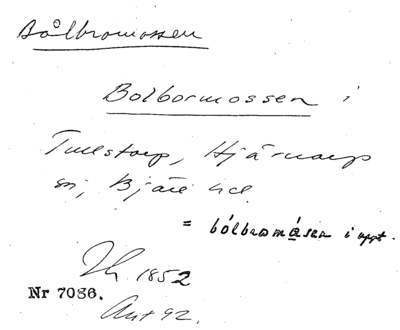 Bålbromossen
Bolbormossen i
Tullstorp, Hjärnarp
sn, Bjäre hd.
= bólbromåsen i uppt.
Th 1852
Nr 7086.
Ant 92.